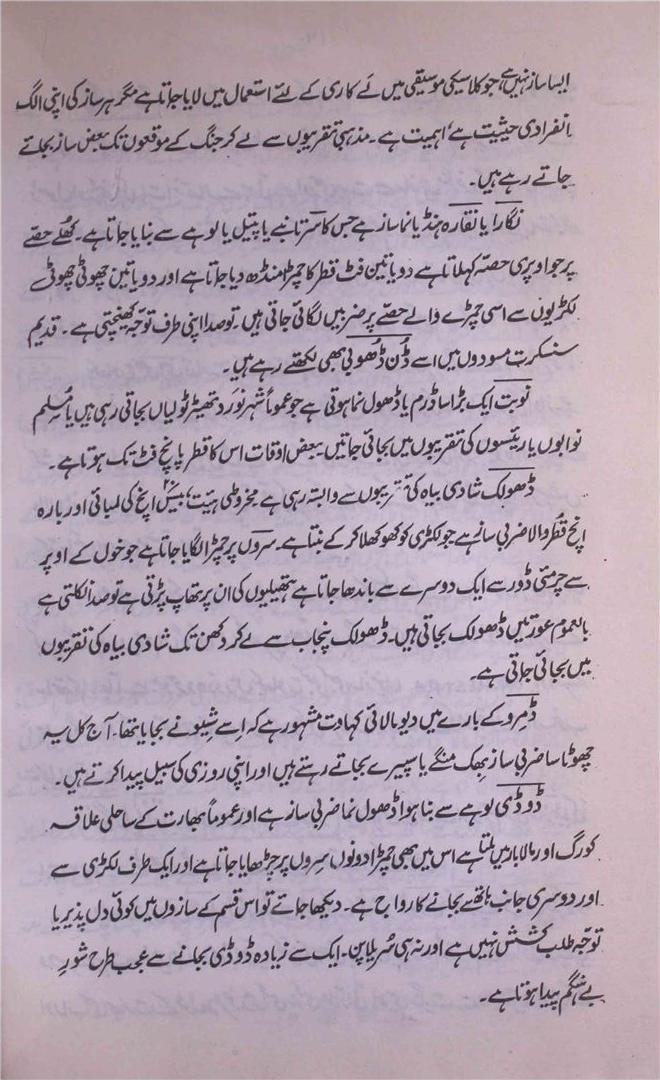 ایسا ساز نہیں ہے جو کلاسیکی موسیقی میں لَے کاری کے لئے استعمال میں لایا جاتا ہے مگر ہر ساز کی اپنی الگ
انفرادی حیثیت ہے، اہمیت ہے۔ مذہبی تقریبوں سے لے کر جنگ کے موقعوں تک بعض ساز بجائے
جاتے رہے ہیں۔
نگارا یا نقارہ ہنڈیا نما ساز ہے جس کا سَر تانبے یا پیتل یا لوہے سے بنایا جاتا ہے۔ کھُلے حصّے
پر جو اوپری حصّہ کہلاتا ہے دو یا تین فٹ قطر کا چمڑا منڈھ دیا جاتا ہے اور دو یا تین چھوٹی چھوٹی
لکڑیوں سے اسی چمڑے والے حصّے پر ضربیں لگائی جاتی ہیں۔ تو صدا اپنی طرف توجّہ کھینچتی ہے۔ قدیم
سنسکرت مسودوں میں اسے دُن دُھوبی بھی لکھتے رہے ہیں۔
نوبت ایک بڑا سا ڈرم یا ڈھول نما ہوتی ہے جو عموماً شہر نَورد تھیٹر ٹولیاں بجاتی رہی ہیں یا مُسلم
نوابوں یا رئیسوں کی تقریبوں میں بجائی جاتیں۔ بعض اوقات اس کا قطر پانچ فٹ تک ہوتا ہے۔
ڈھولک شادی بیاہ کی تقریبوں سے وابستہ رہی ہے۔ مخروطی ہیئت، بیس انچ کی لمبائی اور بارہ
انچ قُطر والا ضربی ساز ہے جو لکڑی کو کھوکھلا کر کے بنتا ہے۔ سروں پر چمڑا لگایا جاتا ہے جو خول کے اوپر
سے چرمئی ڈور سے ایک دوسرے سے باندھا جاتا ہے ہتھیلیوں کی ان پر تھاپ پڑتی ہے تو صدا نکلتی ہے
بالعموم عورتیں ڈھولک بجاتی ہیں۔ ڈھولک پنجاب سے لے کر دکھن تک شادی بیاہ کی تقریبوں
میں بجائی جاتی ہے۔
ڈمرو کے بارے میں دیومالائی کہاوت مشہور ہے کہ اسے شِیو نے بجایا تھا۔ آج کل یہ
چھوٹا سا ضربی ساز بھک منگے یا سپیرے بجاتے رہتے ہیں اور اپنی روزی کی سبیل پیدا کرتے ہیں۔
ڈوڈی لوہے سے بنا ہوا ڈھول نما ضربی ساز ہے اور عموماً بھارت کے ساحلی علاقہ
کورگ اور مالابار میں ملتا ہے اس میں بھی چمڑا دونوں سروں پر چڑھایا جاتا ہے اور ایک طرف لکڑی سے
اور دوسری جانب ہاتھ سے بجانے کا رواج ہے۔ دیکھا جائے تو اس قسم کے سازوں میں کوئی دل پذیر یا
توجّہ طلب کشش نہیں ہے اور نہ ہی سُریلا پن۔ ایک سے زیادہ ڈوڈی بجانے سے عجب طرح شورِ
بے ہنگم پیدا ہوتا ہے۔